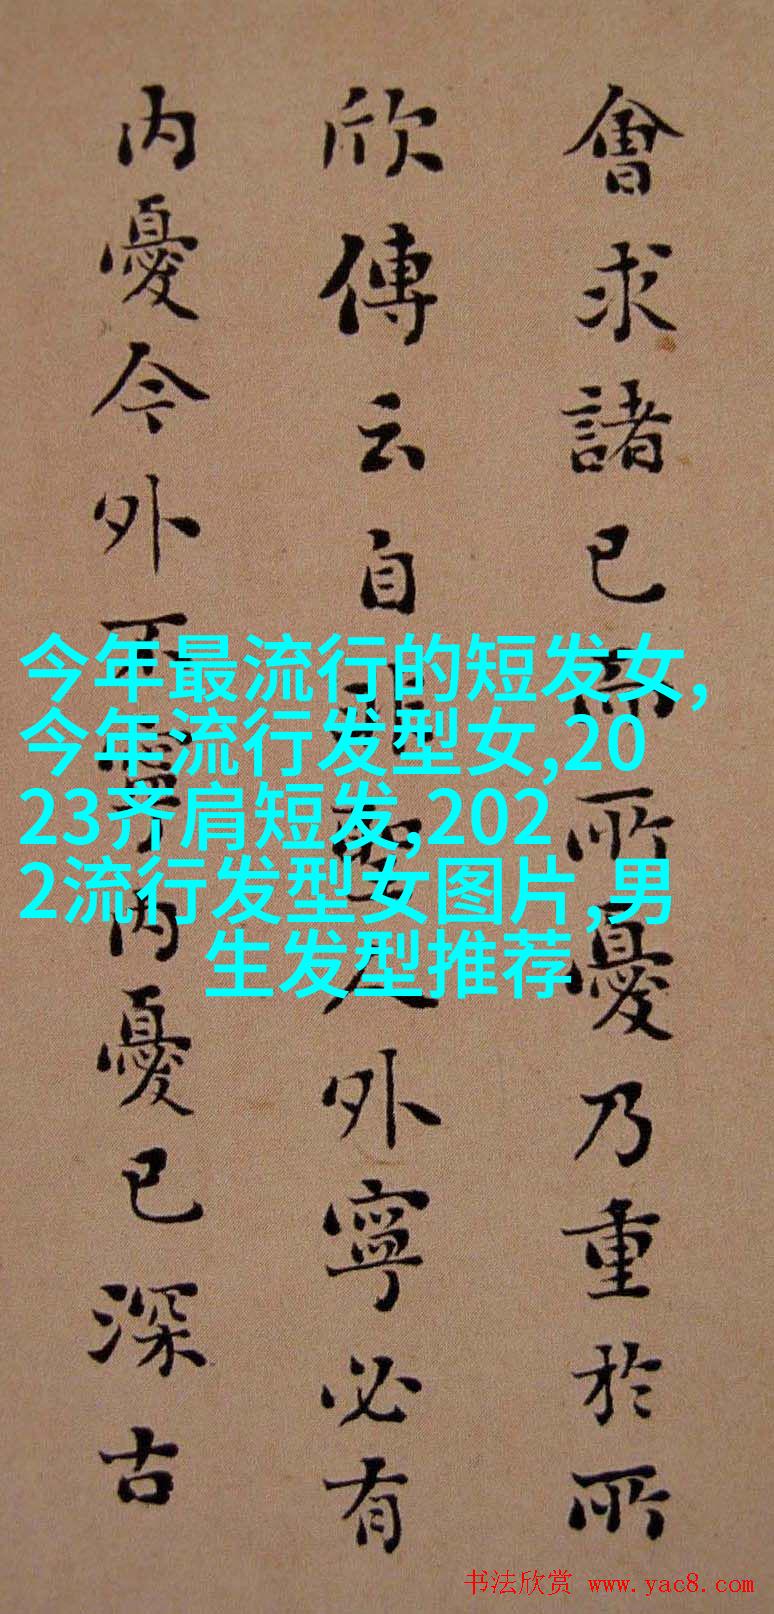 會求諸己而所憂乃重於所
欣傳云自非聖人外寧必有
内憂今外不寧内憂已深古
今年最流行的短发女,
今年流行发型女,20
23齐肩短发,202
2流行发型女图片,男
生发型推荐
书法欣赏 www.yac8.com